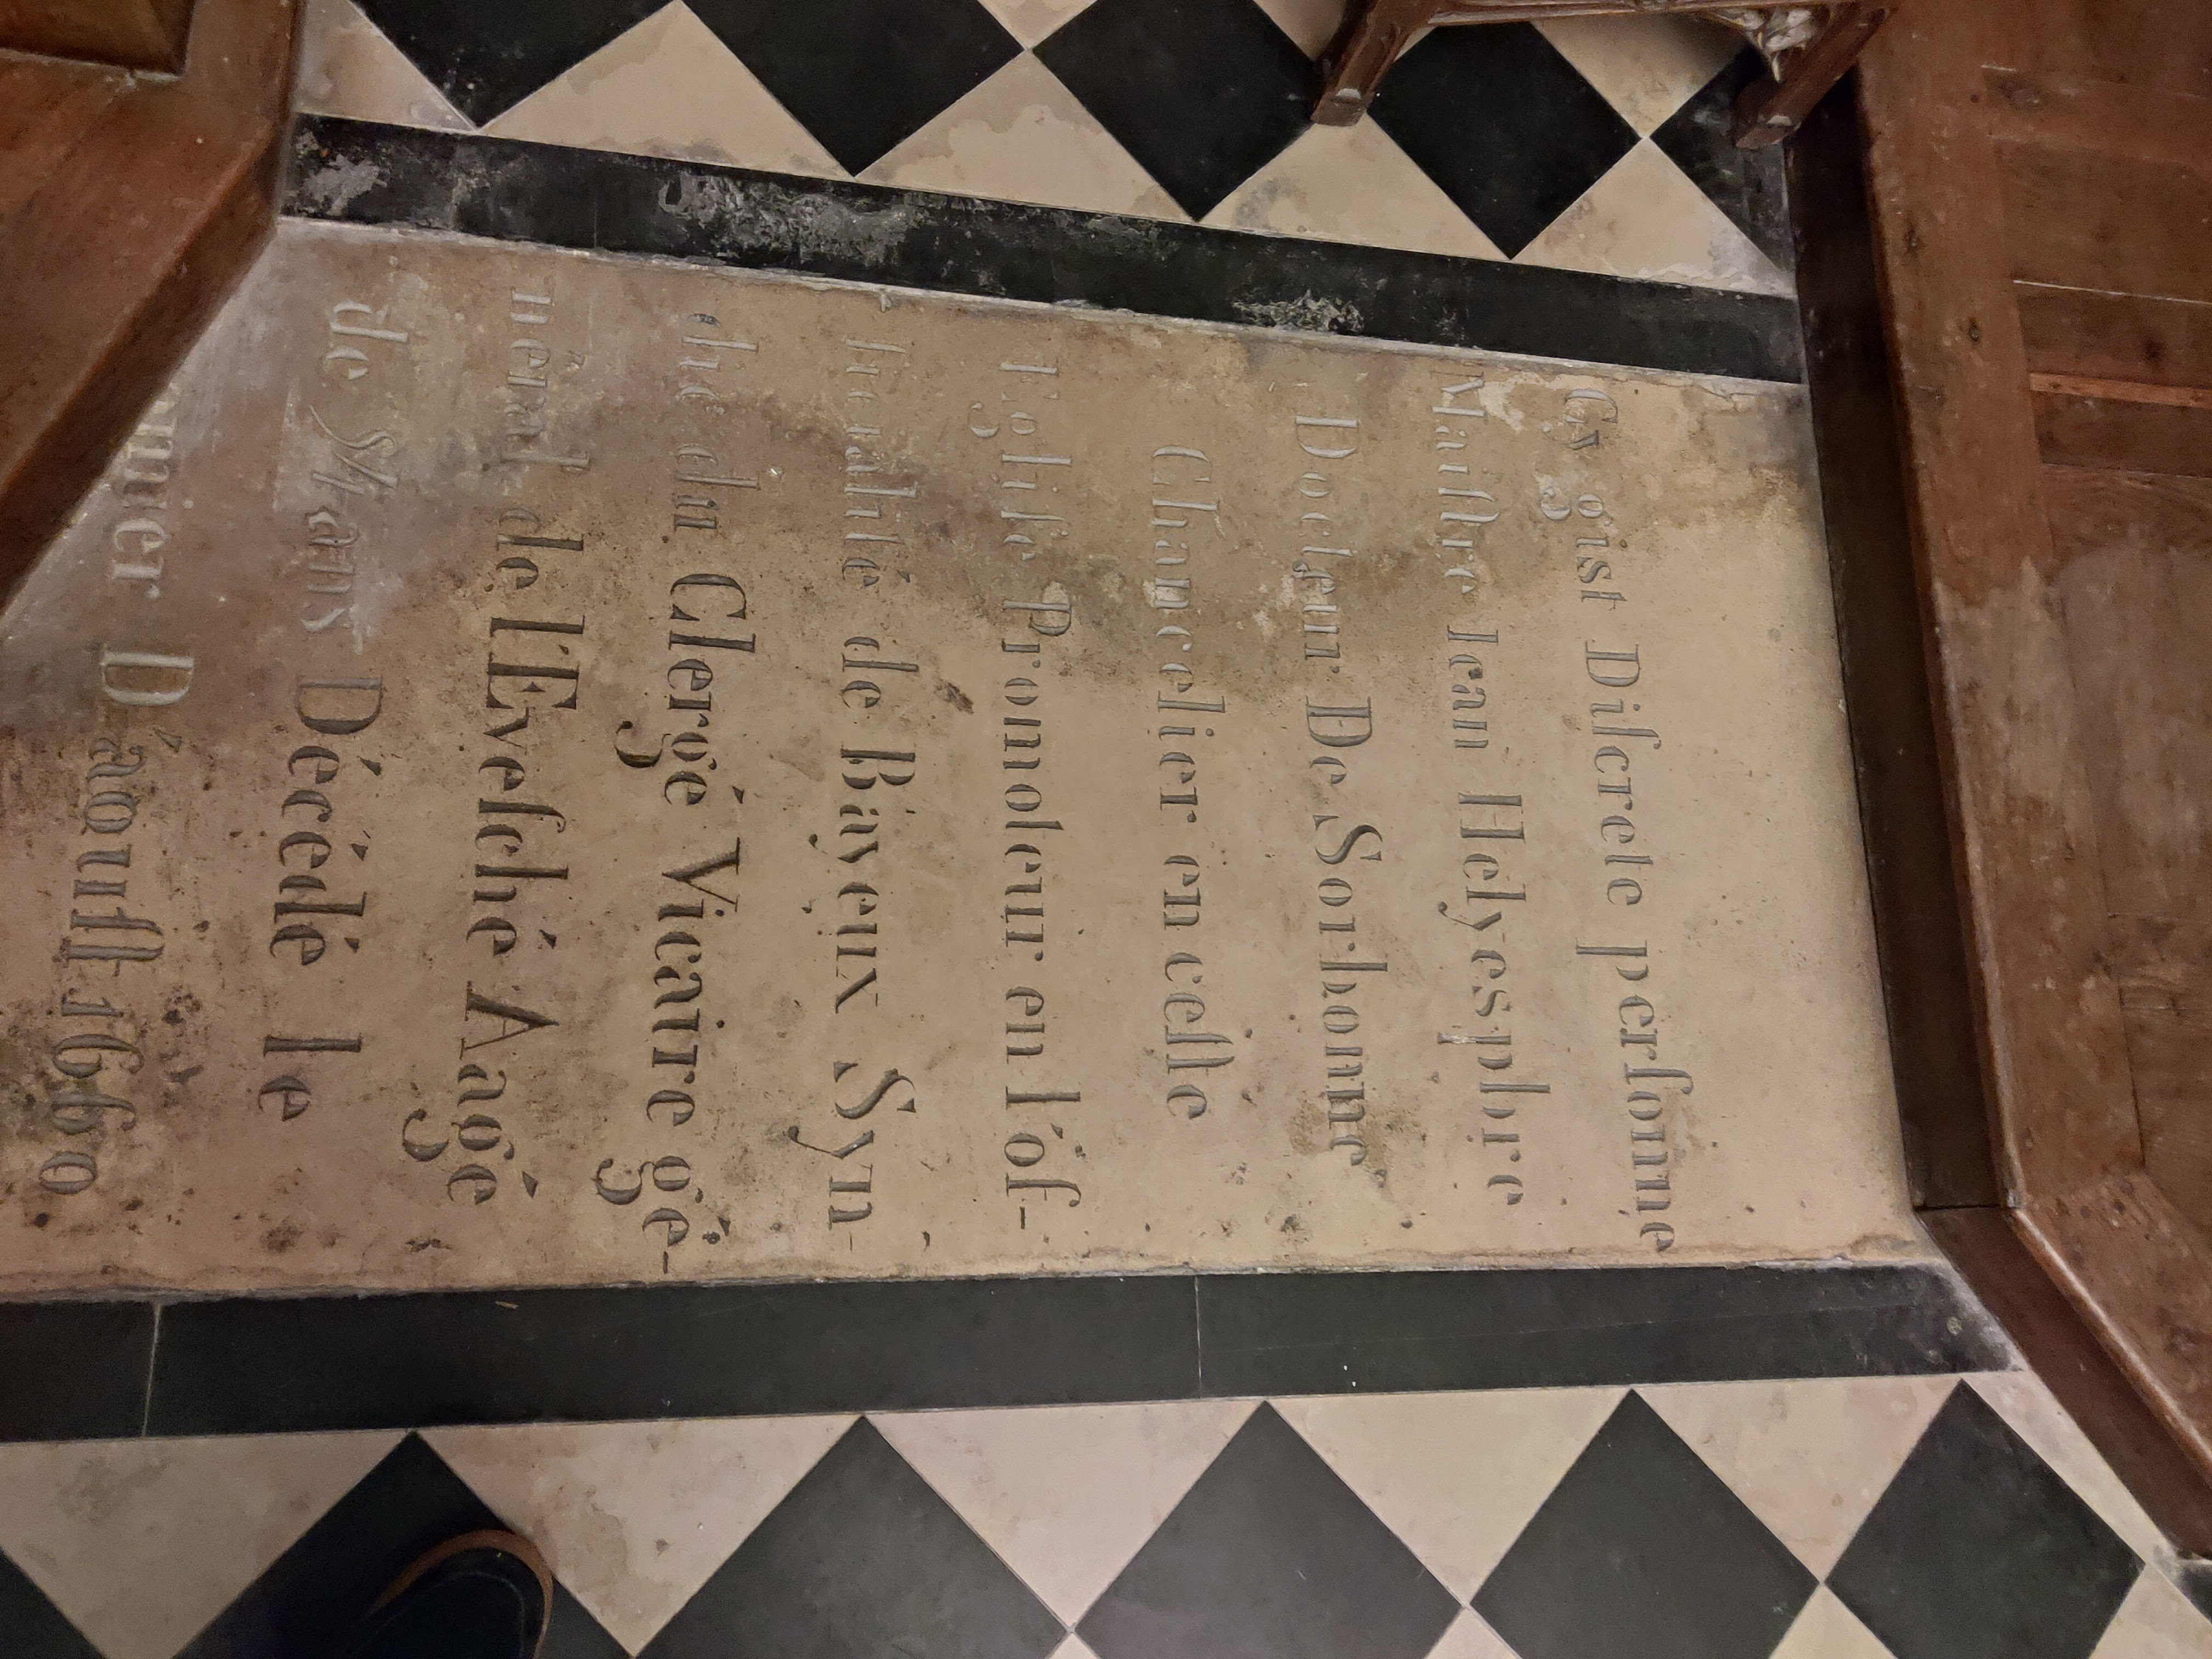 Cy gist Discrete personne
Maistre Iean Helyespbre
Docteur De Sorbonne
Chancelier en cesse
Eglise Promoteur en l'of-
ficialité de Bayeux Syn-
dic du Clergé Vicaire gé-
néral de l'Evesché Aagé
de Ans Décédé le
D'aoust 1660